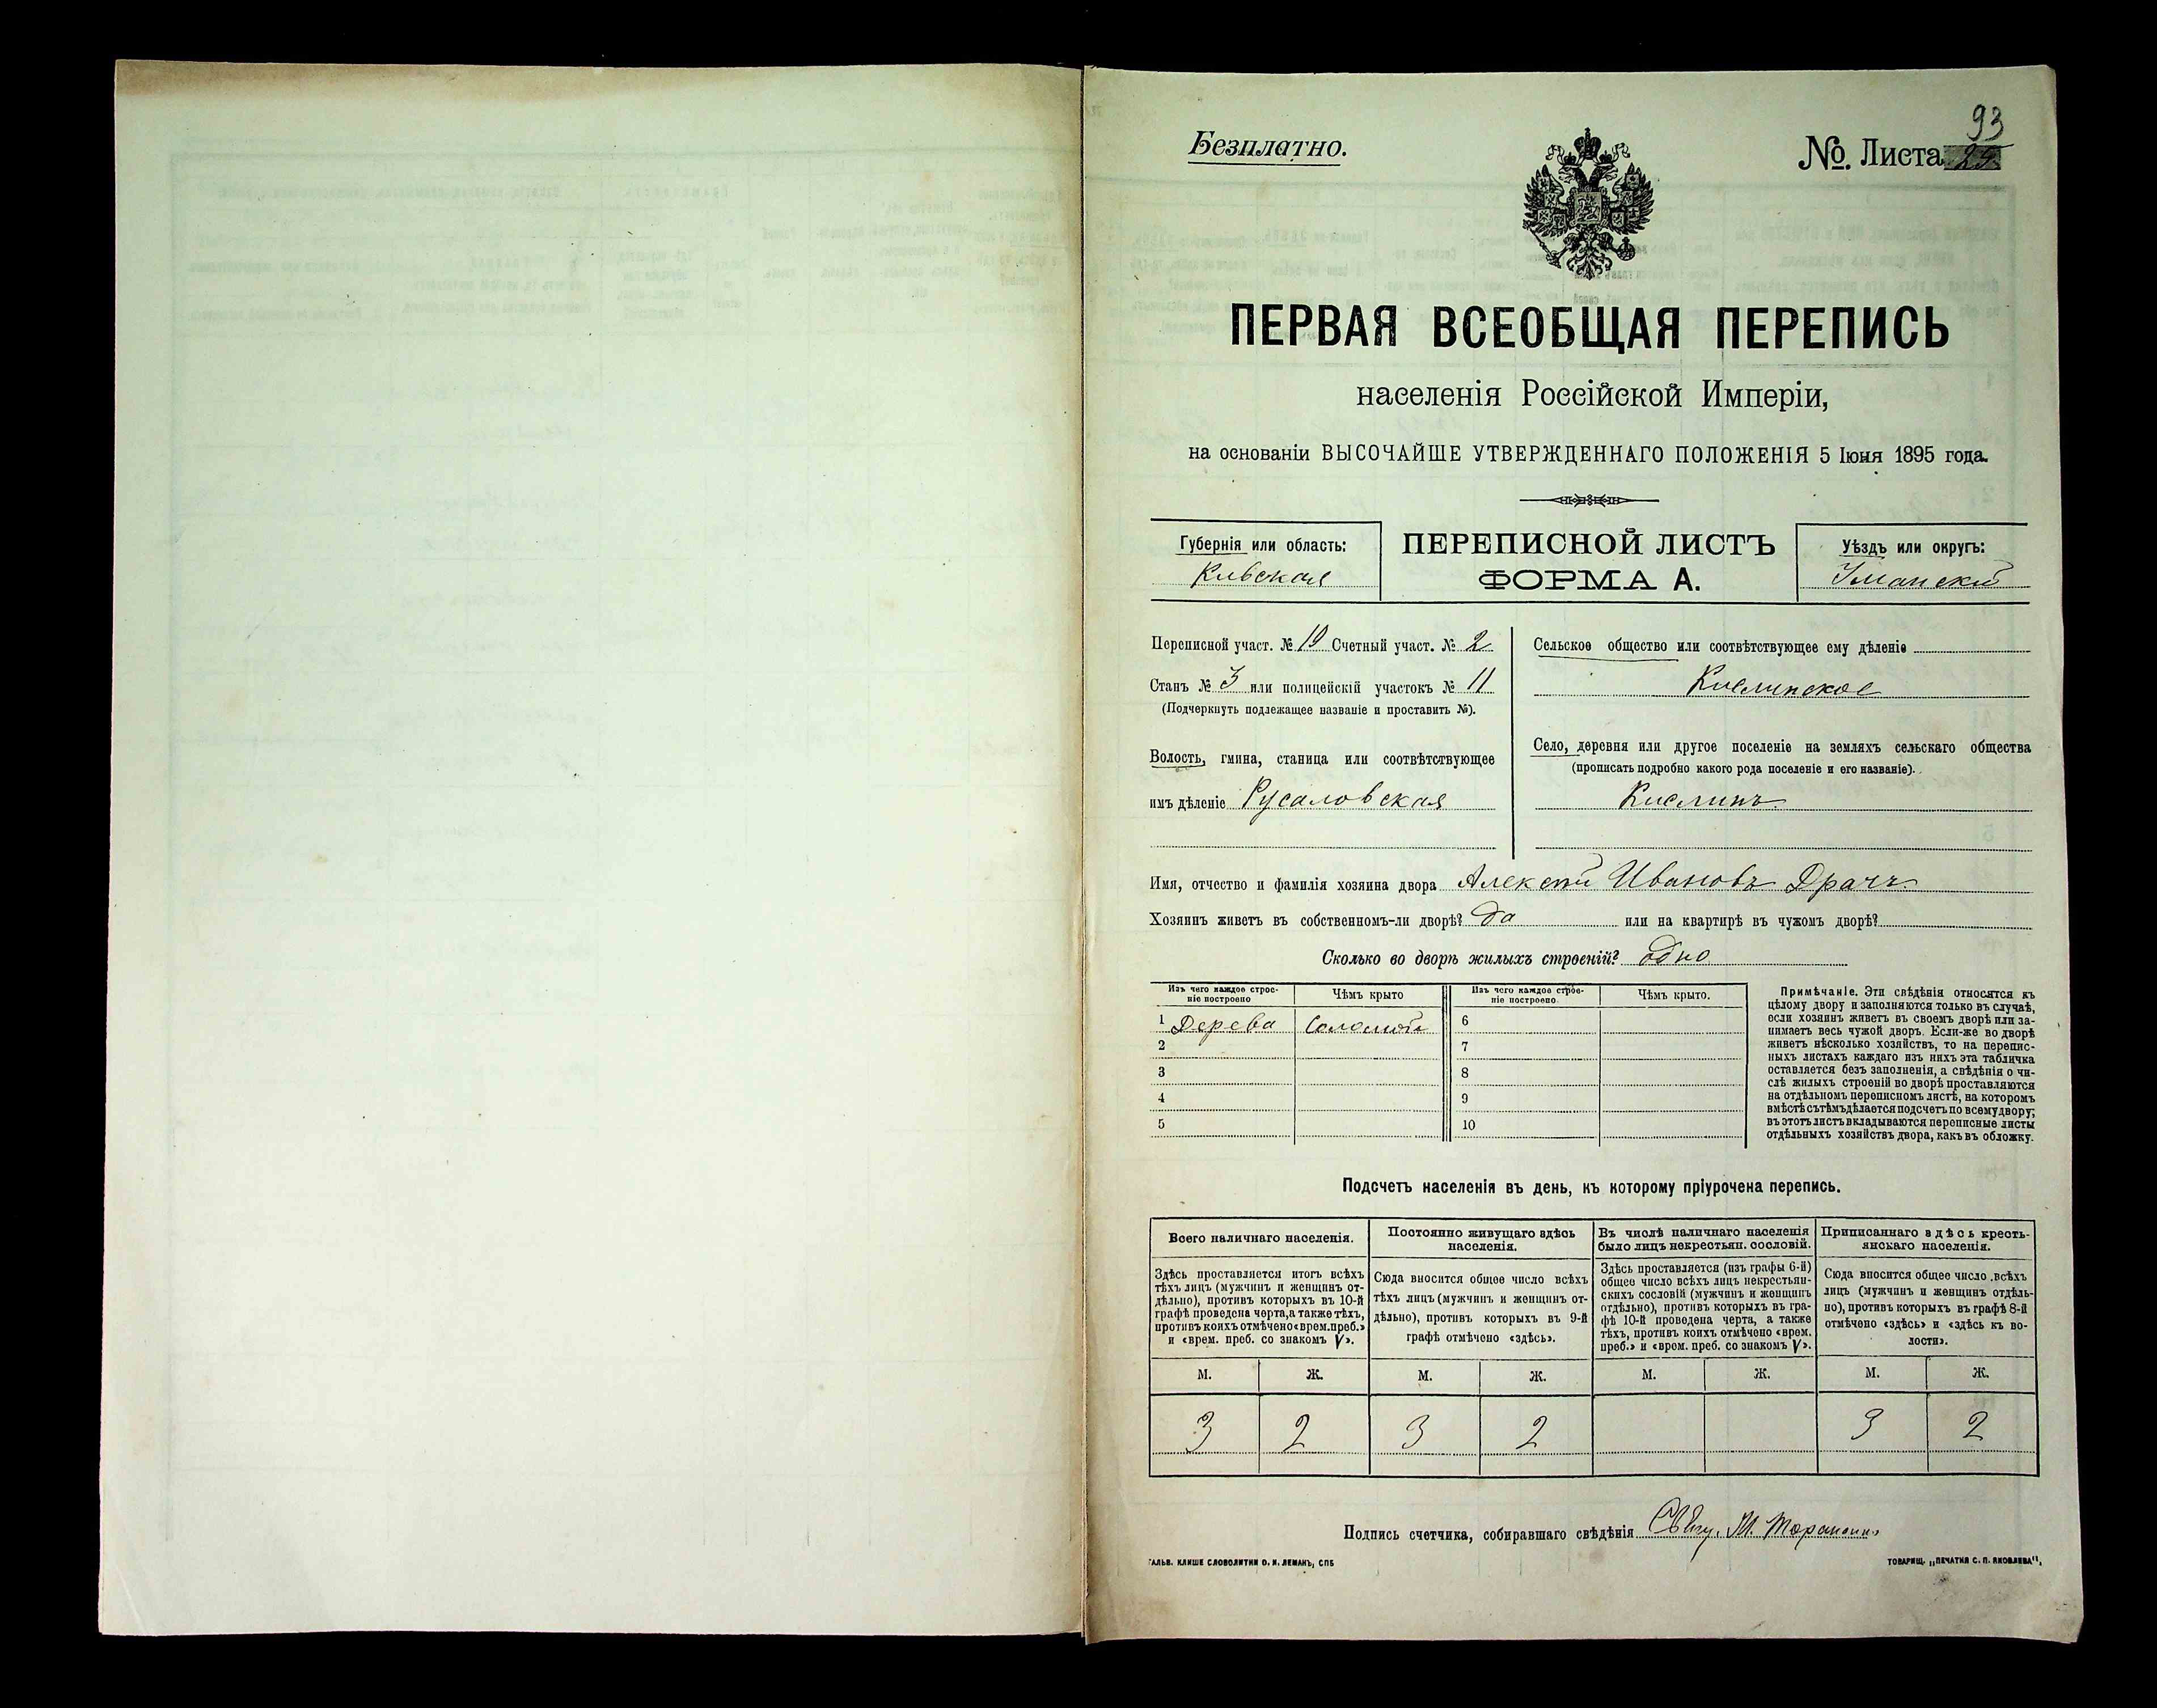 93
Безплатно.
№. Листа 25
ПЕРВАЯ ВСЕОБЩАЯ ПЕРЕПИСЬ
населенія Россійской Имперіи,
на основаніи ВЫСОЧАЙШЕ УТВЕРЖДЕННАГО ПОЛОЖЕНІЯ 5 Іюня 1895 года.
Губернія или область:
Кивская
ПЕРЕПИСНОЙ ЛИСТЪ
ФОРМА А.
Уѣздъ или округъ:
Уманский
Переписной участ. № 10 Счетный участ. № 2
Станъ № 3 или полицейскій участокъ № 11
(Подчеркнуть подлежащее названіе и проставить №).
Волость, гмина, станица или соотвѣтствующее
имъ дѣленіе Русаловская
Сельское общество или соотвѣтствующее ему дѣленіе
Кислинское
Село, деревня или другое поселеніе на земляхъ сельскаго общества
(прописать подробно какого рода поселеніе и его названіе).
Кислинъ
Имя, отчество и фамилія хозяина двора Алексѣй Ивановъ Драчъ
Хозяинъ живетъ въ собственномъ-ли дворѣ? да или на квартирѣ въ чужомъ дворѣ?
Сколько во дворѣ жилыхъ строеній? одно
Изъ чего каждое строе-
ніе построено
Чѣмъ крыто
Изъ чего каждое строе-
ніе построено
Чѣмъ крыто.
1 Дерева Соломой 6
2 7
3 8
4 9
5 10
Примѣчаніе. Эти свѣдѣнія относятся къ
цѣлому двору и заполняются только въ случаѣ,
если хозяинъ живетъ въ своемъ дворѣ или за-
нимаетъ весь чужой дворъ. Если-же во дворѣ
живетъ нѣсколько хозяйствъ, то на перепис-
ныхъ листахъ каждаго изъ нихъ эта табличка
оставляется безъ заполненія, а свѣдѣнія о чи-
слѣ жилыхъ строеній во дворѣ проставляются
на отдѣльномъ переписномъ листѣ, на которомъ
вмѣстѣ съ тѣмъ дѣлается подсчетъ по всему двору;
въ этотъ листъ вкладываются переписные листы
отдѣльныхъ хозяйствъ двора, какъ въ обложку.
Подсчетъ населенія въ день, къ которому пріурочена перепись.
Всего наличнаго населенія.
Здѣсь проставляется итогъ всѣхъ
тѣхъ лицъ (мужчинъ и женщинъ от-
дѣльно), противъ которыхъ въ 10-й
графѣ проведена черта, а также тѣхъ,
противъ коихъ отмѣчено «врем. преб.»
и «врем. преб. со знакомъ V».
Постоянно живущаго здѣсь
населенія.
Сюда вносится общее число всѣхъ
тѣхъ лицъ (мужчинъ и женщинъ от-
дѣльно), противъ которыхъ въ 9-й
графѣ отмѣчено «здѣсь».
Въ числѣ наличнаго населенія
было лицъ некрестьян. сословій.
Здѣсь проставляется (изъ графы 6-й)
общее число всѣхъ лицъ некрестьян-
скихъ сословій (мужчинъ и женщинъ
отдѣльно), противъ которыхъ въ гра-
фѣ 10-й проведена черта, а также
тѣхъ, противъ коихъ отмѣчено «врем.
преб.» и «врем. преб. со знакомъ V».
Приписаннаго здѣсь кресть-
янскаго населенія.
Сюда вносится общее число всѣхъ
лицъ (мужчинъ и женщинъ отдѣль-
но), противъ которыхъ въ графѣ 8-й
отмѣчено «здѣсь» и «здѣсь къ во-
лости».
М. Ж. М. Ж. М. Ж. М. Ж.
3 2 3 2 3 2
Подпись счетчика, собиравшаго свѣдѣнія
ГАЛЬВ. КЛИШЕ СЛОВОЛИТНИ О. И. ЛЕМАНЪ, СПБ
ТОВАРИЩ. „ПЕЧАТНЯ С. П. ЯКОВЛЕВА“,